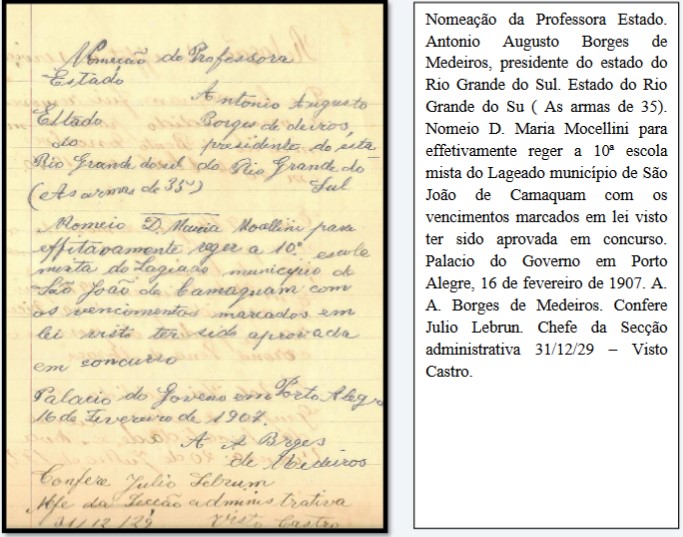 Nomeação de Professora
Estado
Antonio Augusto
Estado Borges de deiros,
do presidente do esta-
Rio Grande do sul do Rio Grande do
(As armas de 35) Sul
Nomeio D. Maria Mocellini para
effitavamente reger a 10ª escola
mixta do Lageado municipio de
São João de Camaquam com
os vencimentos marcados em
lei visto ter sido aprovada
em concurso
Palacio do Governo em Porto Alegre
16 de Fevereiro de 1907.
A A Brges
de Medeiros
Confere Julio Lebrum
Chfe da Secção administrativa
31/12/29 Visto Castro
Nomeação da Professora Estado.
Antonio Augusto Borges de
Medeiros, presidente do estado do
Rio Grande do Sul. Estado do Rio
Grande do Su ( As armas de 35).
Nomeio D. Maria Mocellini para
effetivamente reger a 10ª escola
mista do Lageado município de São
João de Camaquam com os
vencimentos marcados em lei visto
ter sido aprovada em concurso.
Palacio do Governo em Porto
Alegre, 16 de fevereiro de 1907. A.
A. Borges de Medeiros. Confere
Julio Lebrun. Chefe da Secção
administrativa 31/12/29 – Visto
Castro.